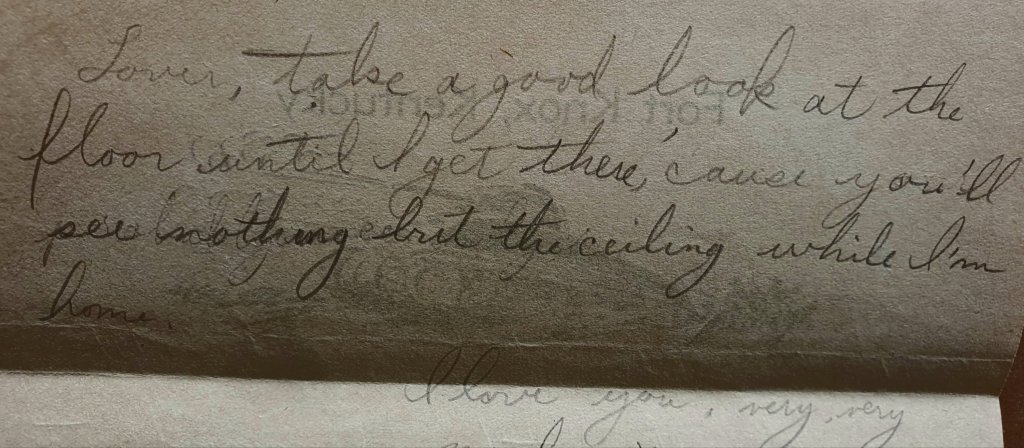 Lover, take a good look at the
Fort Knox, Kentucky
floor until I get there, 'cause you'll
see nothing but the ceiling while I'm
home.
I love you, very, very